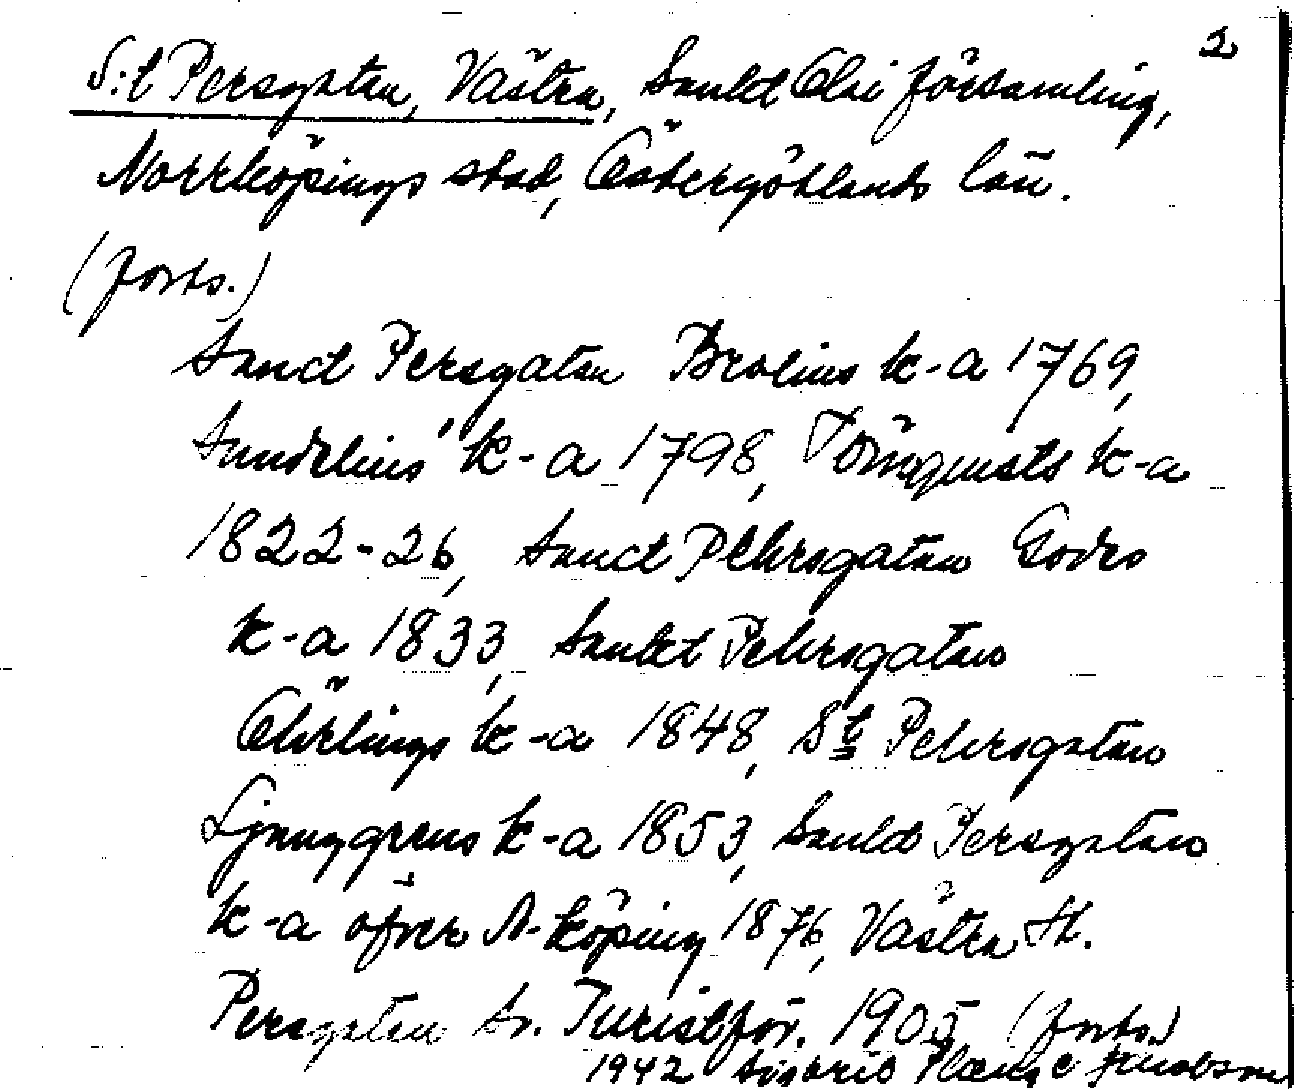 2
S:t Persgatan, Västra, Sankt Olai församling,
Norrköpings stad, Östergötlands län.
(forts.)
Sanct Persgatan Brolins k-a 1769,
Sundelius' k-a 1798, Törnquists k-a
1822-26, Sanct Pehrsgatan Godes
k-a 1833, Sankt Pehrsgatan
Öhrlings k-a 1848, St Pehrsgatan
Ljunggrens k-a 1853, Sankt Persgatan
k-a öfver N-köping 1876, Västra St.
Persgatan Sv. Turistför. 1905 (forts.)
1942 Ingrid Jakobson